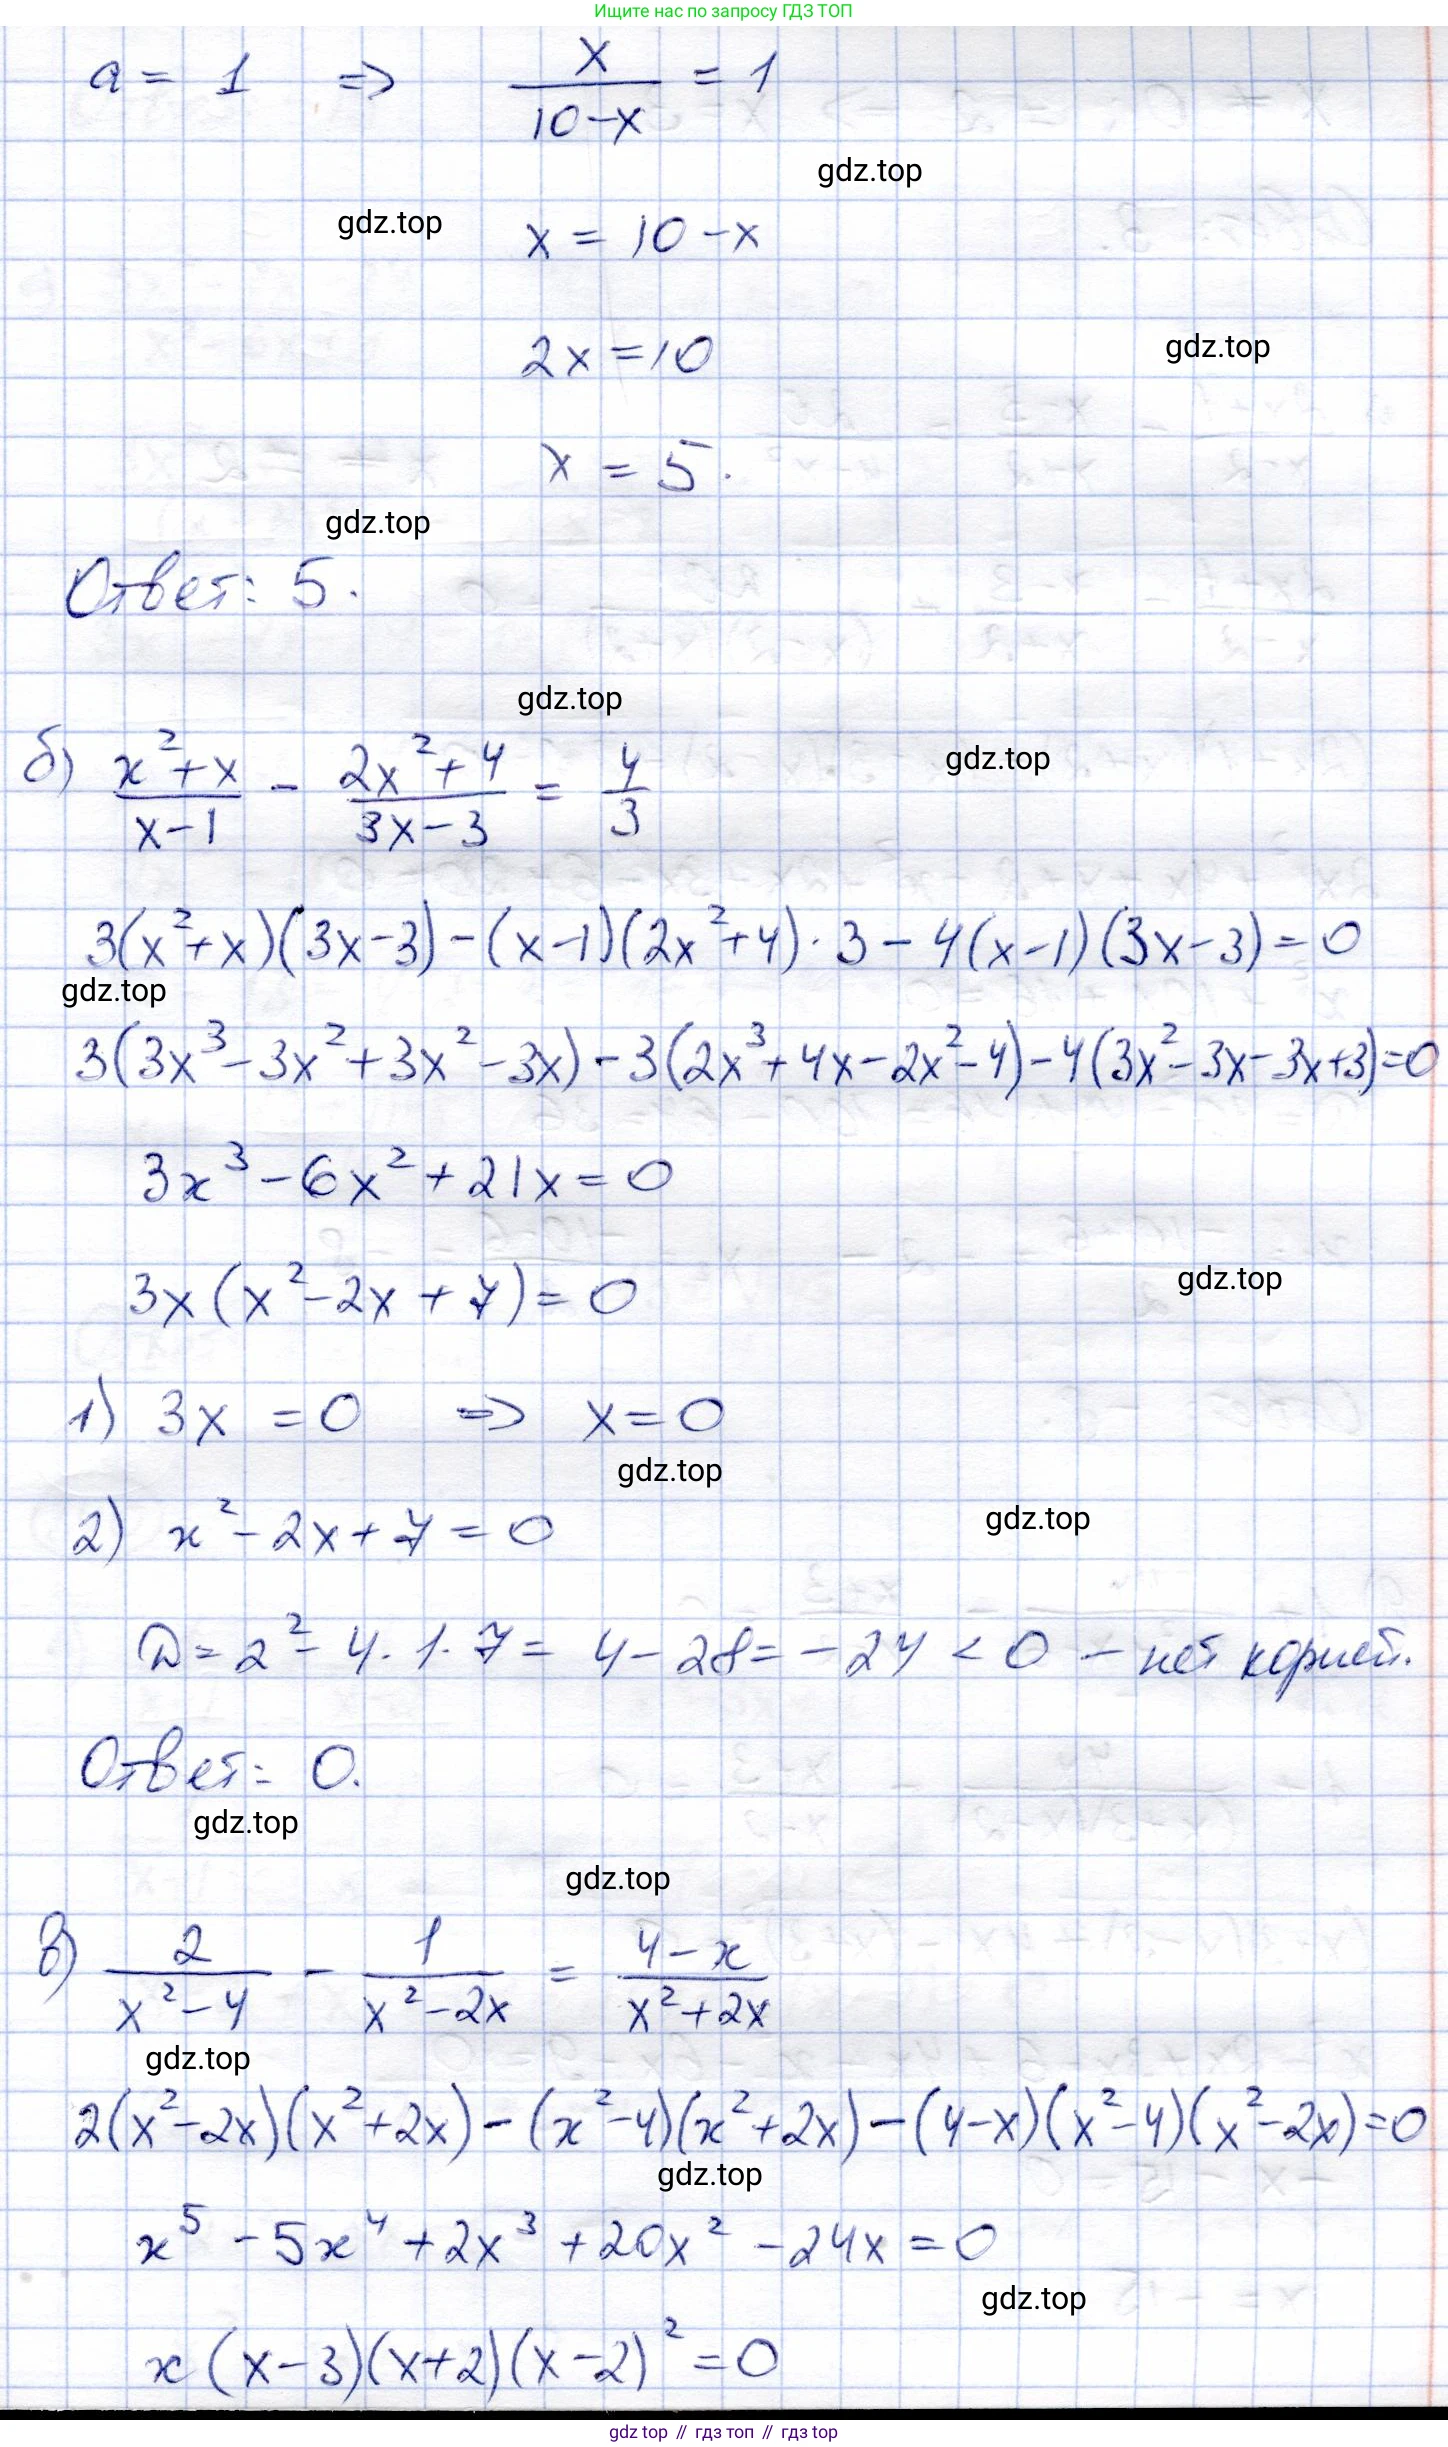 Ищите нас по запросу ГДЗ ТОП
a = 1 => x/(10-x) = 1
gdz.top
gdz.top
x = 10 - x
2x = 10
gdz.top
x = 5.
gdz.top
Ответ: 5.
gdz.top
б) (x²+x)/(x-1) - (2x²+4)/(3x-3) = 4/3
gdz.top
3(x²+x)(3x-3) - (x-1)(2x²+4)·3 - 4(x-1)(3x-3) = 0
gdz.top
3(3x³-3x²+3x²-3x) - 3(2x³+4x-2x²-4) - 4(3x²-3x-3x+3) = 0
3x³ - 6x² + 21x = 0
gdz.top
3x(x²-2x+7) = 0
1) 3x = 0 => x = 0
gdz.top
gdz.top
2) x² - 2x + 7 = 0
D = 2² - 4·1·7 = 4 - 28 = -24 < 0 - нет корней.
Ответ: 0.
gdz.top
gdz.top
в) 2/(x²-4) - 1/(x²-2x) = (4-x)/(x²+2x)
gdz.top
2(x²-2x)(x²+2x) - (x²-4)(x²+2x) - (4-x)(x²-4)(x²-2x) = 0
gdz.top
x⁵ - 5x⁴ + 2x³ + 20x² - 24x = 0
gdz.top
x(x-3)(x+2)(x-2)² = 0
gdz top // гдз топ // гдз top